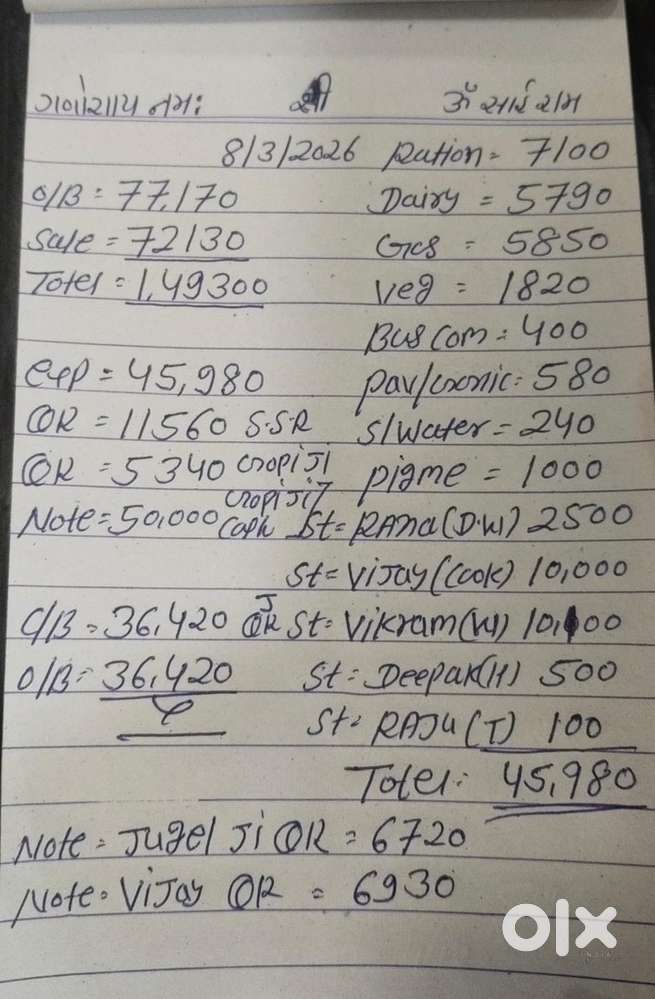 ગણેશાય નમ: શ્રી ૐ સાંઈ રામ
8/3/2026 Ration = 7100
O/B = 77,170 Dairy = 5790
Sale = 72130 Gas = 5850
Totel = 1,49300 Veg = 1820
Bus Com = 400
exp = 45,980 Pav/ 580
QR = 11560 S.S.R S/Water = 240
QR = 5340 Gopi Ji Pigme = 1000
Note = 50,000 Gopi Ji Cash St = RAna (D.W) 2500
St = Vijay (Cook) 10,000
C/B = 36,420 J QR St = Vikram (W) 10,100
O/B = 36,420 St = Deepak (H) 500
St = RAJU (T) 100
Totel = 45,980
Note = Jugel Ji QR = 6720
Note = Vijay QR = 6930
olx
INDIA